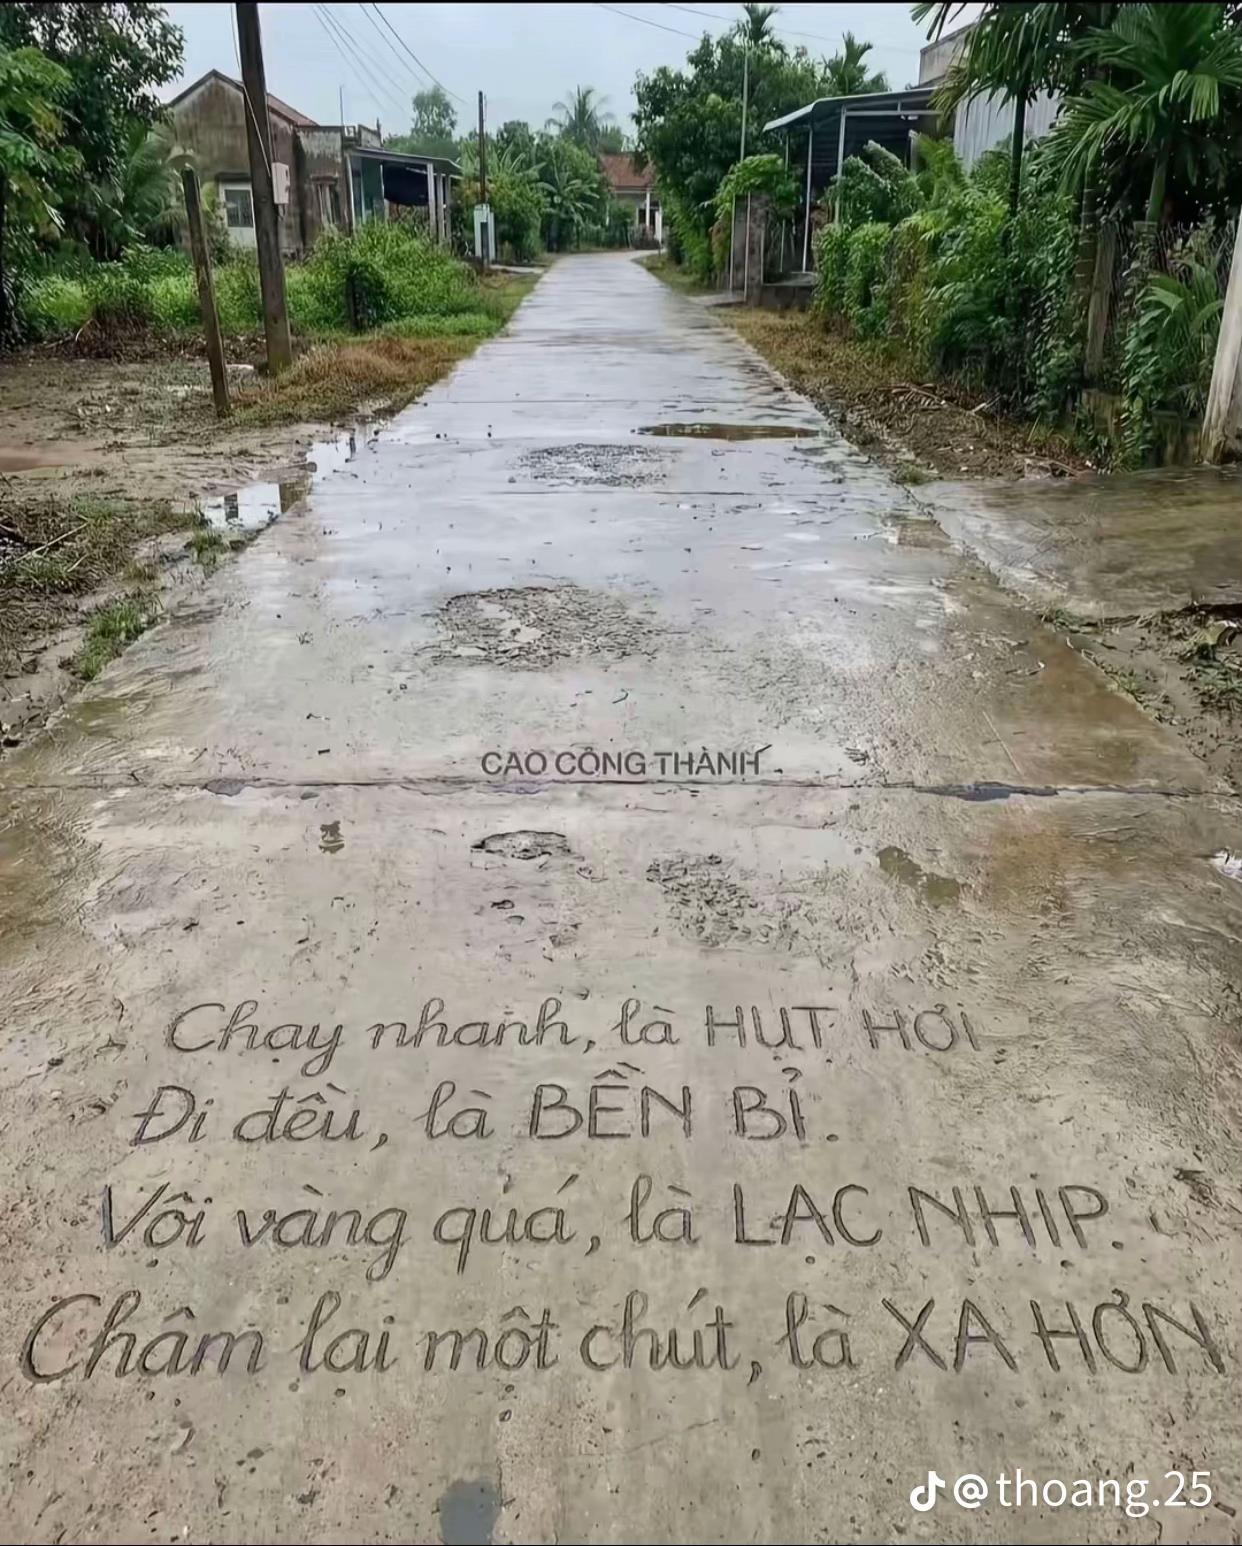 CAO CÔNG THÀNH
Chạy nhanh, là HỤT HƠI
Đi đều, là BỀN BỈ.
Vội vàng quá, là LẠC NHỊP.
Chậm lại một chút, là XA HƠN
@thoang.25